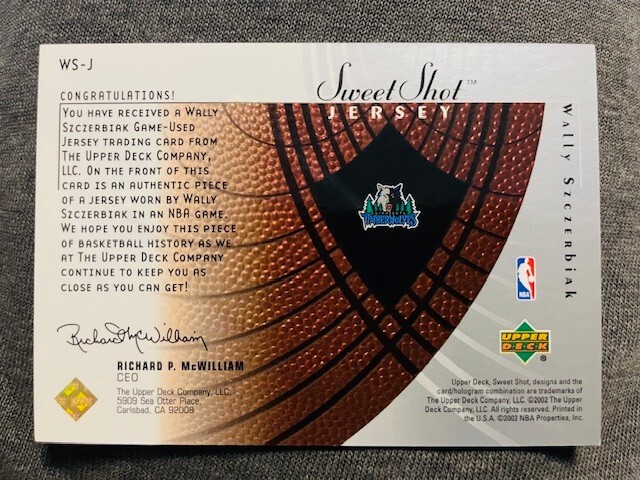 WS-J
Sweet Shot™
JERSEY
CONGRATULATIONS!
YOU HAVE RECEIVED A WALLY
SZCZERBIAK GAME-USED
JERSEY TRADING CARD FROM
THE UPPER DECK COMPANY,
LLC. ON THE FRONT OF THIS
CARD IS AN AUTHENTIC PIECE
OF A JERSEY WORN BY WALLY
SZCZERBIAK IN AN NBA GAME.
WE HOPE YOU ENJOY THIS PIECE
OF BASKETBALL HISTORY AS WE
AT THE UPPER DECK COMPANY
CONTINUE TO KEEP YOU AS
CLOSE AS YOU CAN GET!
Richard McWilliam
RICHARD P. MCWILLIAM
CEO
The Upper Deck Company, LLC.
5909 Sea Otter Place,
Carlsbad, CA 92008
MINNESOTA
TIMBERWOLVES
WALLY SZCZERBIAK
NBA
UPPER
DECK
®
Upper Deck, Sweet Shot, designs and the
card/hologram combination are trademarks of
The Upper Deck Company, LLC. ©2002 The Upper
Deck Company, LLC. All rights reserved. Printed in
the U.S.A. ©2002 NBA Properties, Inc.